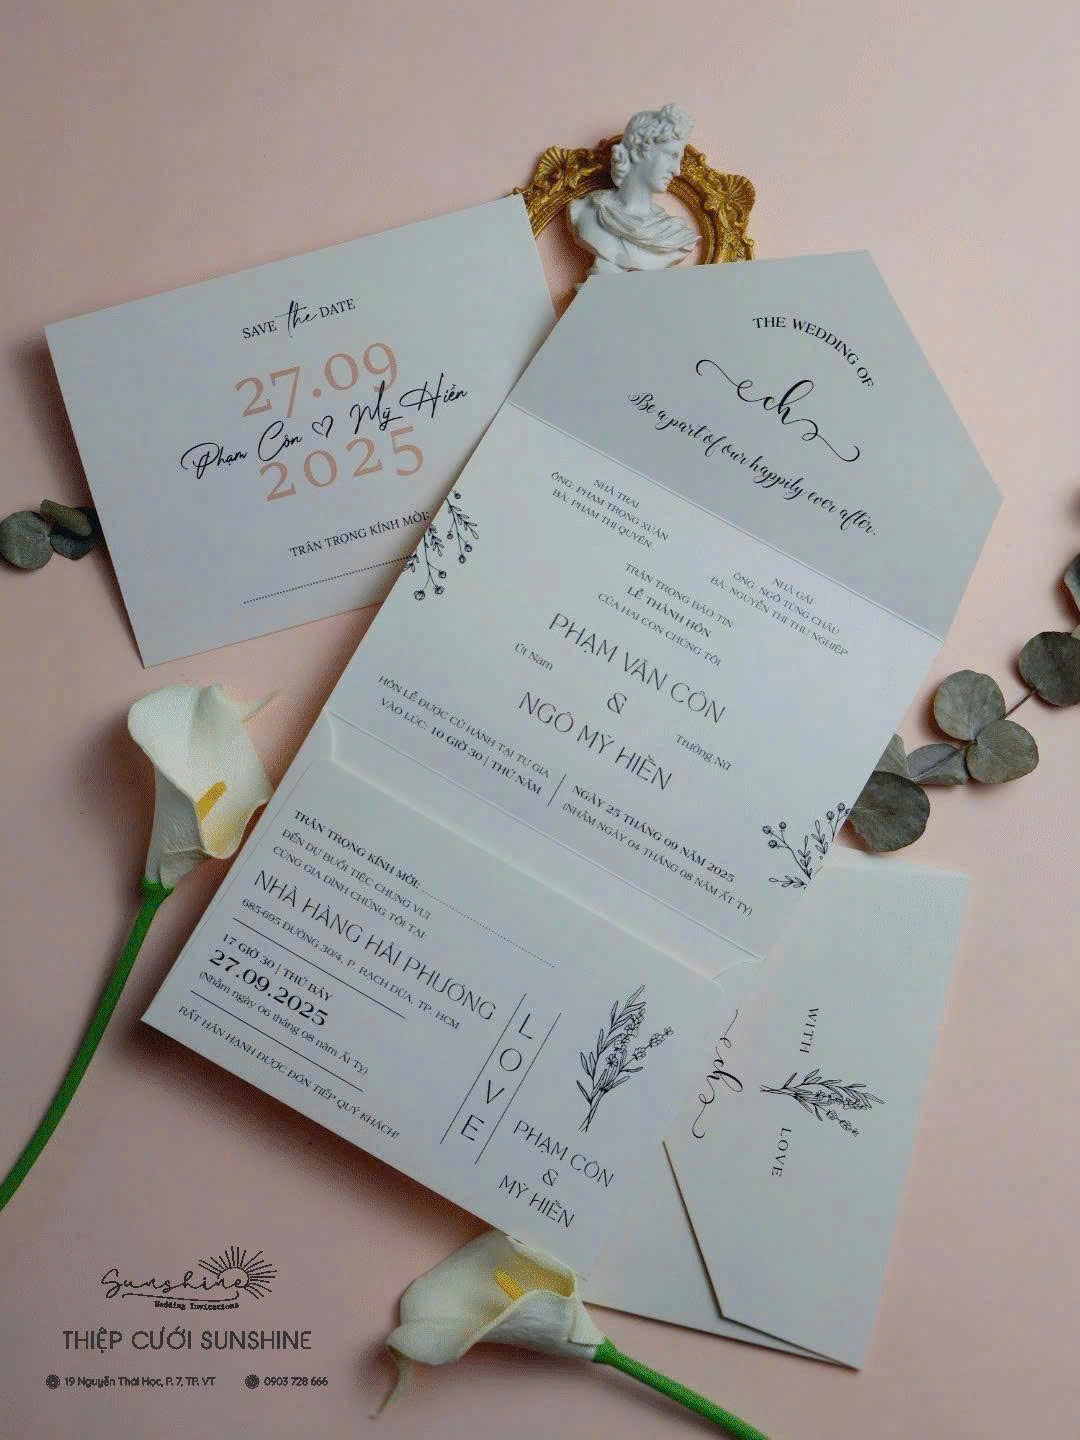 SAVE the DATE
27.09
Phạm Côn ♡ Mỹ Hiền
2025
TRÂN TRỌNG KÍNH MỜI:
THE WEDDING OF
ch
Be a part of our happily ever after.
NHÀ TRAI
ÔNG: PHẠM TRỌNG XUÂN
BÀ: PHẠM THỊ QUYÊN
NHÀ GÁI
ÔNG: NGÔ TÙNG CHÂU
BÀ: NGUYỄN THỊ THU NGHIỆP
TRÂN TRỌNG BÁO TIN
LỄ THÀNH HÔN
CỦA HAI CON CHÚNG TÔI
PHẠM VĂN CÔN
Út Nam
&
NGÔ MỸ HIỀN
Trưởng Nữ
HÔN LỄ ĐƯỢC CỬ HÀNH TẠI TƯ GIA
VÀO LÚC: 10 GIỜ 30 | THỨ NĂM
NGÀY 25 THÁNG 09 NĂM 2025
(NHẰM NGÀY 04 THÁNG 08 NĂM ẤT TỴ)
TRÂN TRỌNG KÍNH MỜI:
ĐẾN DỰ BUỔI TIỆC CHUNG VUI
CÙNG GIA ĐÌNH CHÚNG TÔI TẠI
NHÀ HÀNG HẢI PHƯỢNG
685-695 ĐƯỜNG 30/4, P. RẠCH DỪA, TP. HCM
17 GIỜ 30 | THỨ BẢY
27.09.2025
(Nhằm ngày 06 tháng 08 năm Ất Tỵ)
RẤT HÂN HẠNH ĐƯỢC ĐÓN TIẾP QUÝ KHÁCH!
LOVE
PHẠM CÔN
&
MỸ HIỀN
ch
WITH
LOVE
Sunshine
Wedding Invitations
THIỆP CƯỚI SUNSHINE
19 Nguyễn Thái Học, P. 7, TP. VT
0903 728 666